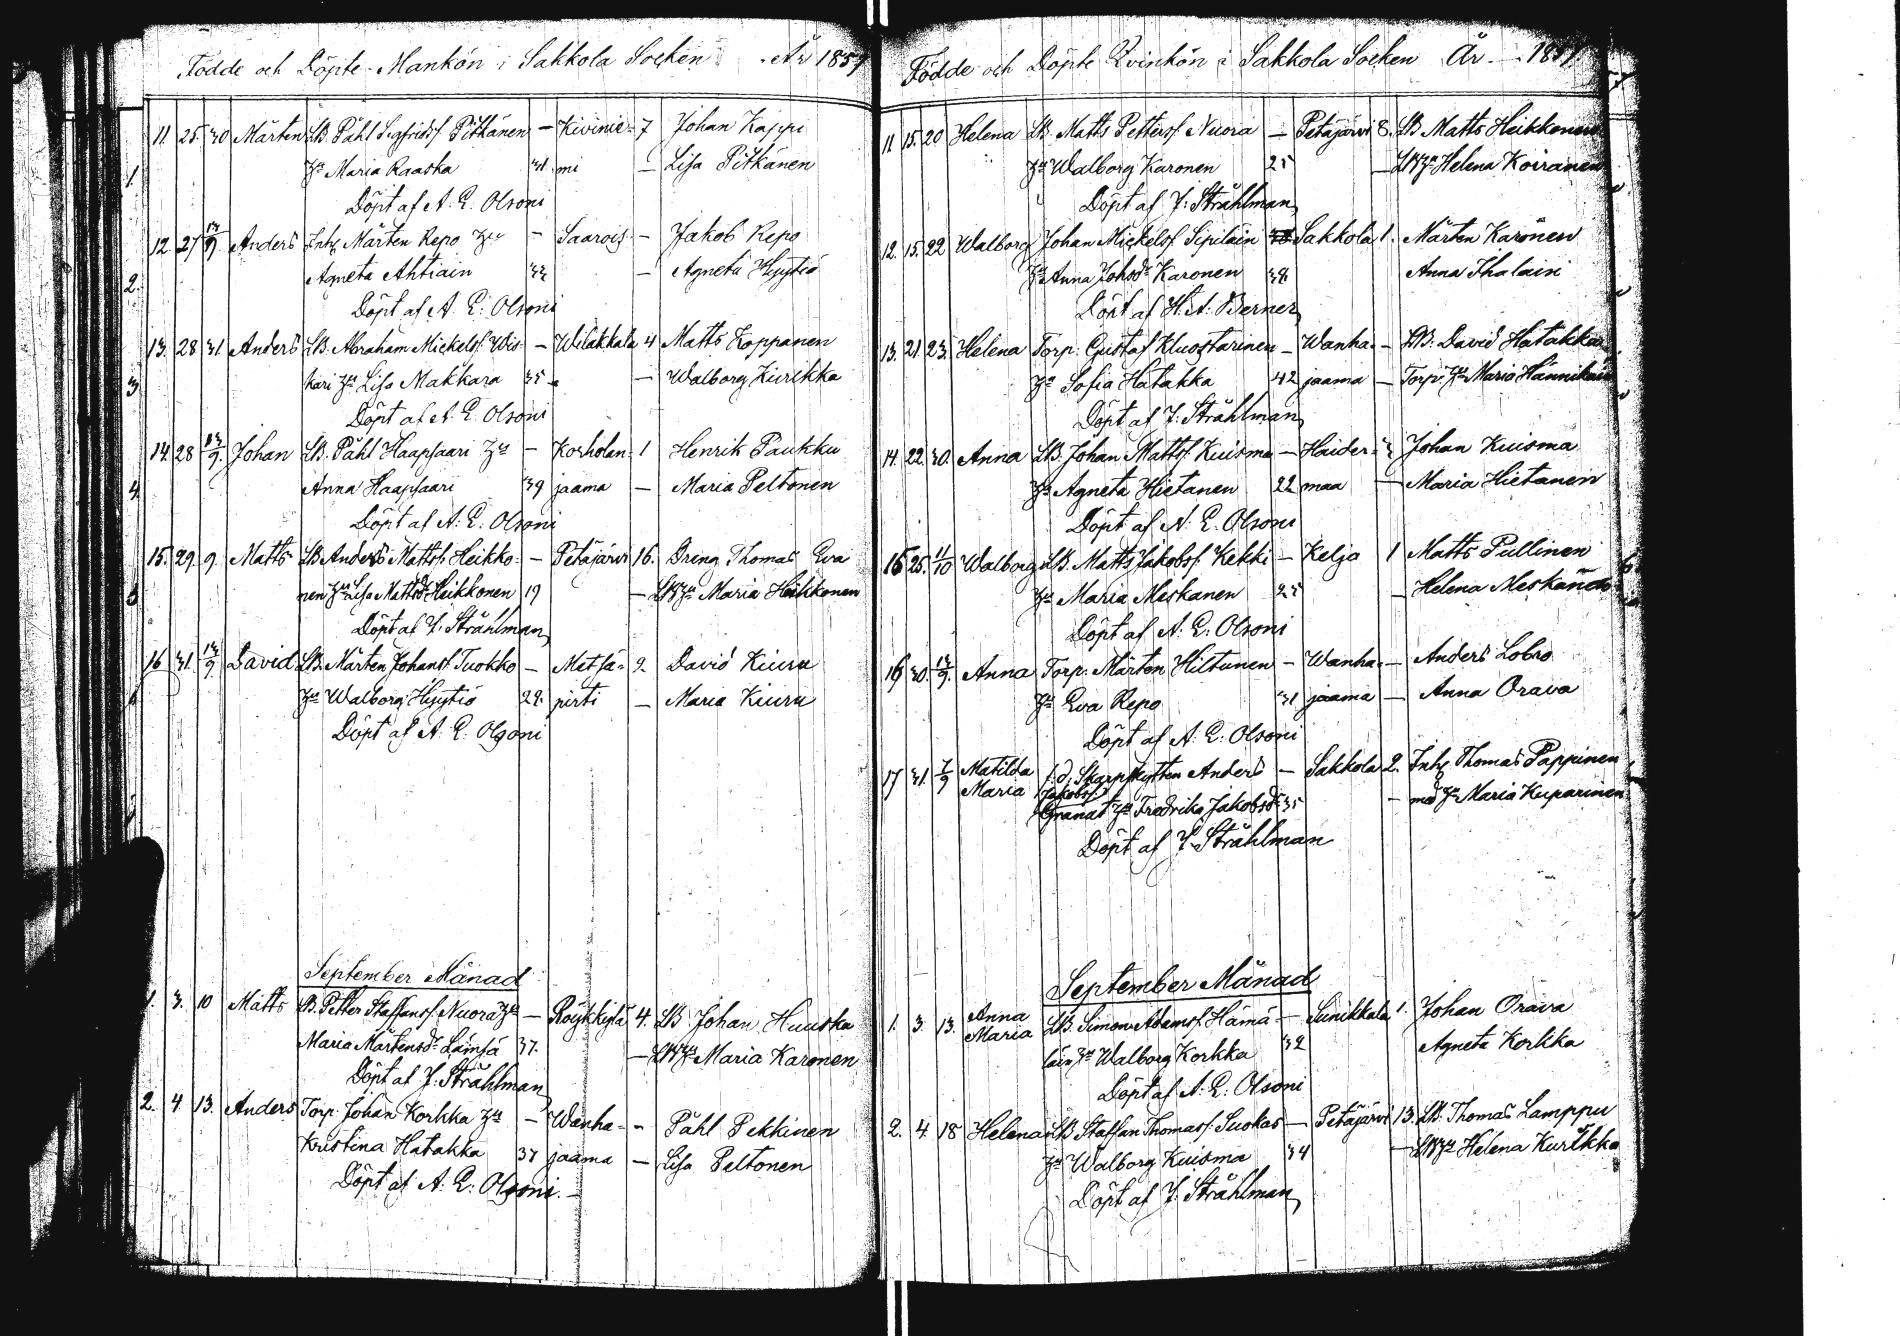 Födde och Döpte Mankön i Sakkola Socken År 1857
11. 25. 30 Mårten LB. Påhl Sigfridsf. Pitkänen — Kivinie- 7 Johan Kappi
Hu Maria Raaska 31. mi — Lisa Pitkänen
1. Döpt af A. E. Olsoni
12 27 13/9. Anders Inh. Mårten Repo Hu — Saarois — Jakob Repo
Agneta Ahtiain 33 — Agneta Hyytiö
2. Döpt af A. E. Olsoni
13. 28 31. Anders LB. Abraham Mickelsf. Wis- — Wilakkala 4 Matts Koppanen
kari Hu Lisa Makkara 35 — Walborg Kurikka
3 Döpt af A. E. Olsoni
14. 28 13/9. Johan LB. Påhl Haapsaari Hu — Korholan- 1 Henrik Paukku
4 Anna Haapsaari 39 jaama — Maria Peltonen
Döpt af A. E. Olsoni
15. 29. 9. Matts LB Anders Mattsf. Heikko- — Petäjärvi 16. Dräng Thomas Eva
nen Hu Lisa Mattsdr Heikkonen 19 — LB Hu Maria Heikkonen
Döpt af J. Stråhlman
16. 31. 13/9. David LB. Mårten Johansf Tuokko — Metsä- 2 David Kiuru
Hu Walborg Hyytiö 28. pirti — Maria Kiuru
Döpt af A. E. Olsoni
September Månad
1. 3. 10 Matts LB. Petter Staffansf Nuora Hu — Röykkylä 4. LB Johan Huuska
Maria Mårtensdr Lämsä 37. — LB Hu Maria Karonen
Döpt af J. Stråhlman
2. 4 13. Anders Torp. Johan Korkka Hu — Wanha- — Påhl Pekkinen
Kristina Hatakka 37 jaama — Lisa Peltonen
Döpt af A. E. Olsoni. —
Födde och Döpte Qvinkön i Sakkola Socken År 1857.
11. 15. 20 Helena LB. Matts Pettersf Nuora — Petäjärvi 8. LB Matts Heikkonen
Hu Walborg Karonen 25 — LB Hu Helena Koiranen
Döpt af J. Stråhlman
12. 15. 22 Walborg Johan Mickelsf Sipiläin Sakkola 1. Mårten Karonen
Hu Anna Johsdr Karonen 38 Anna Ihalain
Döpt af H. A. Berner
13. 21. 23. Helena Torp. Gustaf Kluostarinen — Wanha- — LB. David Hatakka
Hu Sofia Hatakka 42 jaama — Torp. Hu Maria Hännikäin
Döpt af J. Stråhlman
14. 22. 30. Anna LB. Johan Mattsf. Kuisma — Haider- 3 Johan Kuisma
Hu Agneta Hietanen 22 maa — Maria Hietanen
Döpt af A. E. Olsoni
15 25. 11/10 Walborg LB. Matts Jakobsf. Kekki — Kelja 1 Matts Pullinen
Hu Maria Meskanen 25 — Helena Meskanen
Döpt af A. E. Olsoni
16 30. 13/9. Anna Torp. Mårten Hiltunen — Wanha- — Anders Lobro
Hu Eva Repo 31 jaama — Anna Orava
Döpt af A. E. Olsoni
17 31. 7/9 Matilda f.d. Skarpskytten Anders — Sakkola 2. Inh. Thomas Pappinen
Maria Jakobsf. — med Hu Maria Kuparinen
Granat Hu Fredrika Jakobsdr 35
Döpt af J. Stråhlman
September Månad
1. 3. 13. Anna LB. Simon Adamsf. Hämä- — Sunikkala 1. Johan Orava
Maria
läin Hu Walborg Korkka 32 Agneta Korkka
Döpt af A. E. Olsoni
2. 4. 18 Helena LB Staffan Thomasf. Suokas — Petäjärvi 13. LB. Thomas Lamppu
Hu Walborg Kuisma 34 — LB Hu Helena Kurikka
Döpt af J. Stråhlman